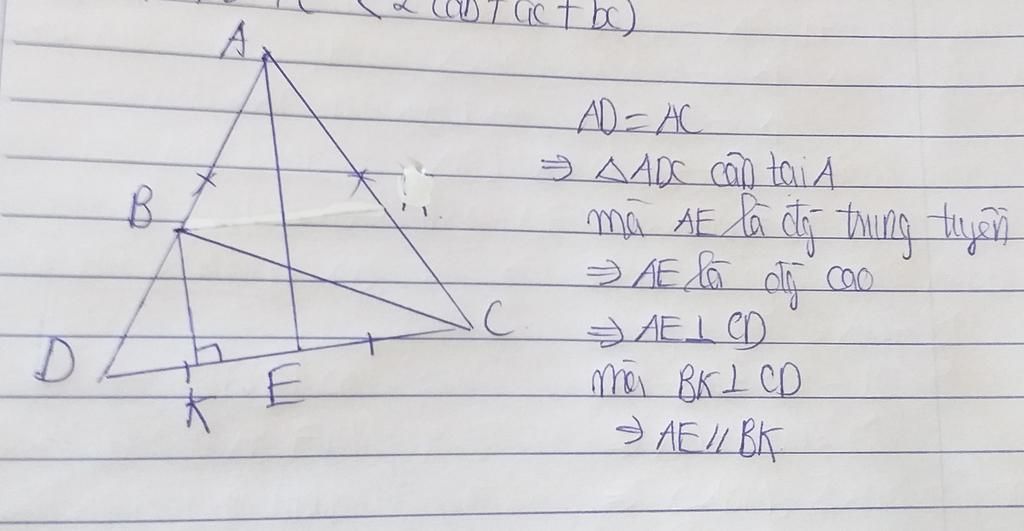 < 2 (ab + ac + bc)
A
B
C
D
K
E
AD = AC
⇒ △ADC cân tại A
mà AE là đg trung tuyến
⇒ AE là đg cao
⇒ AE ⊥ CD
mà BK ⊥ CD
⇒ AE // BK